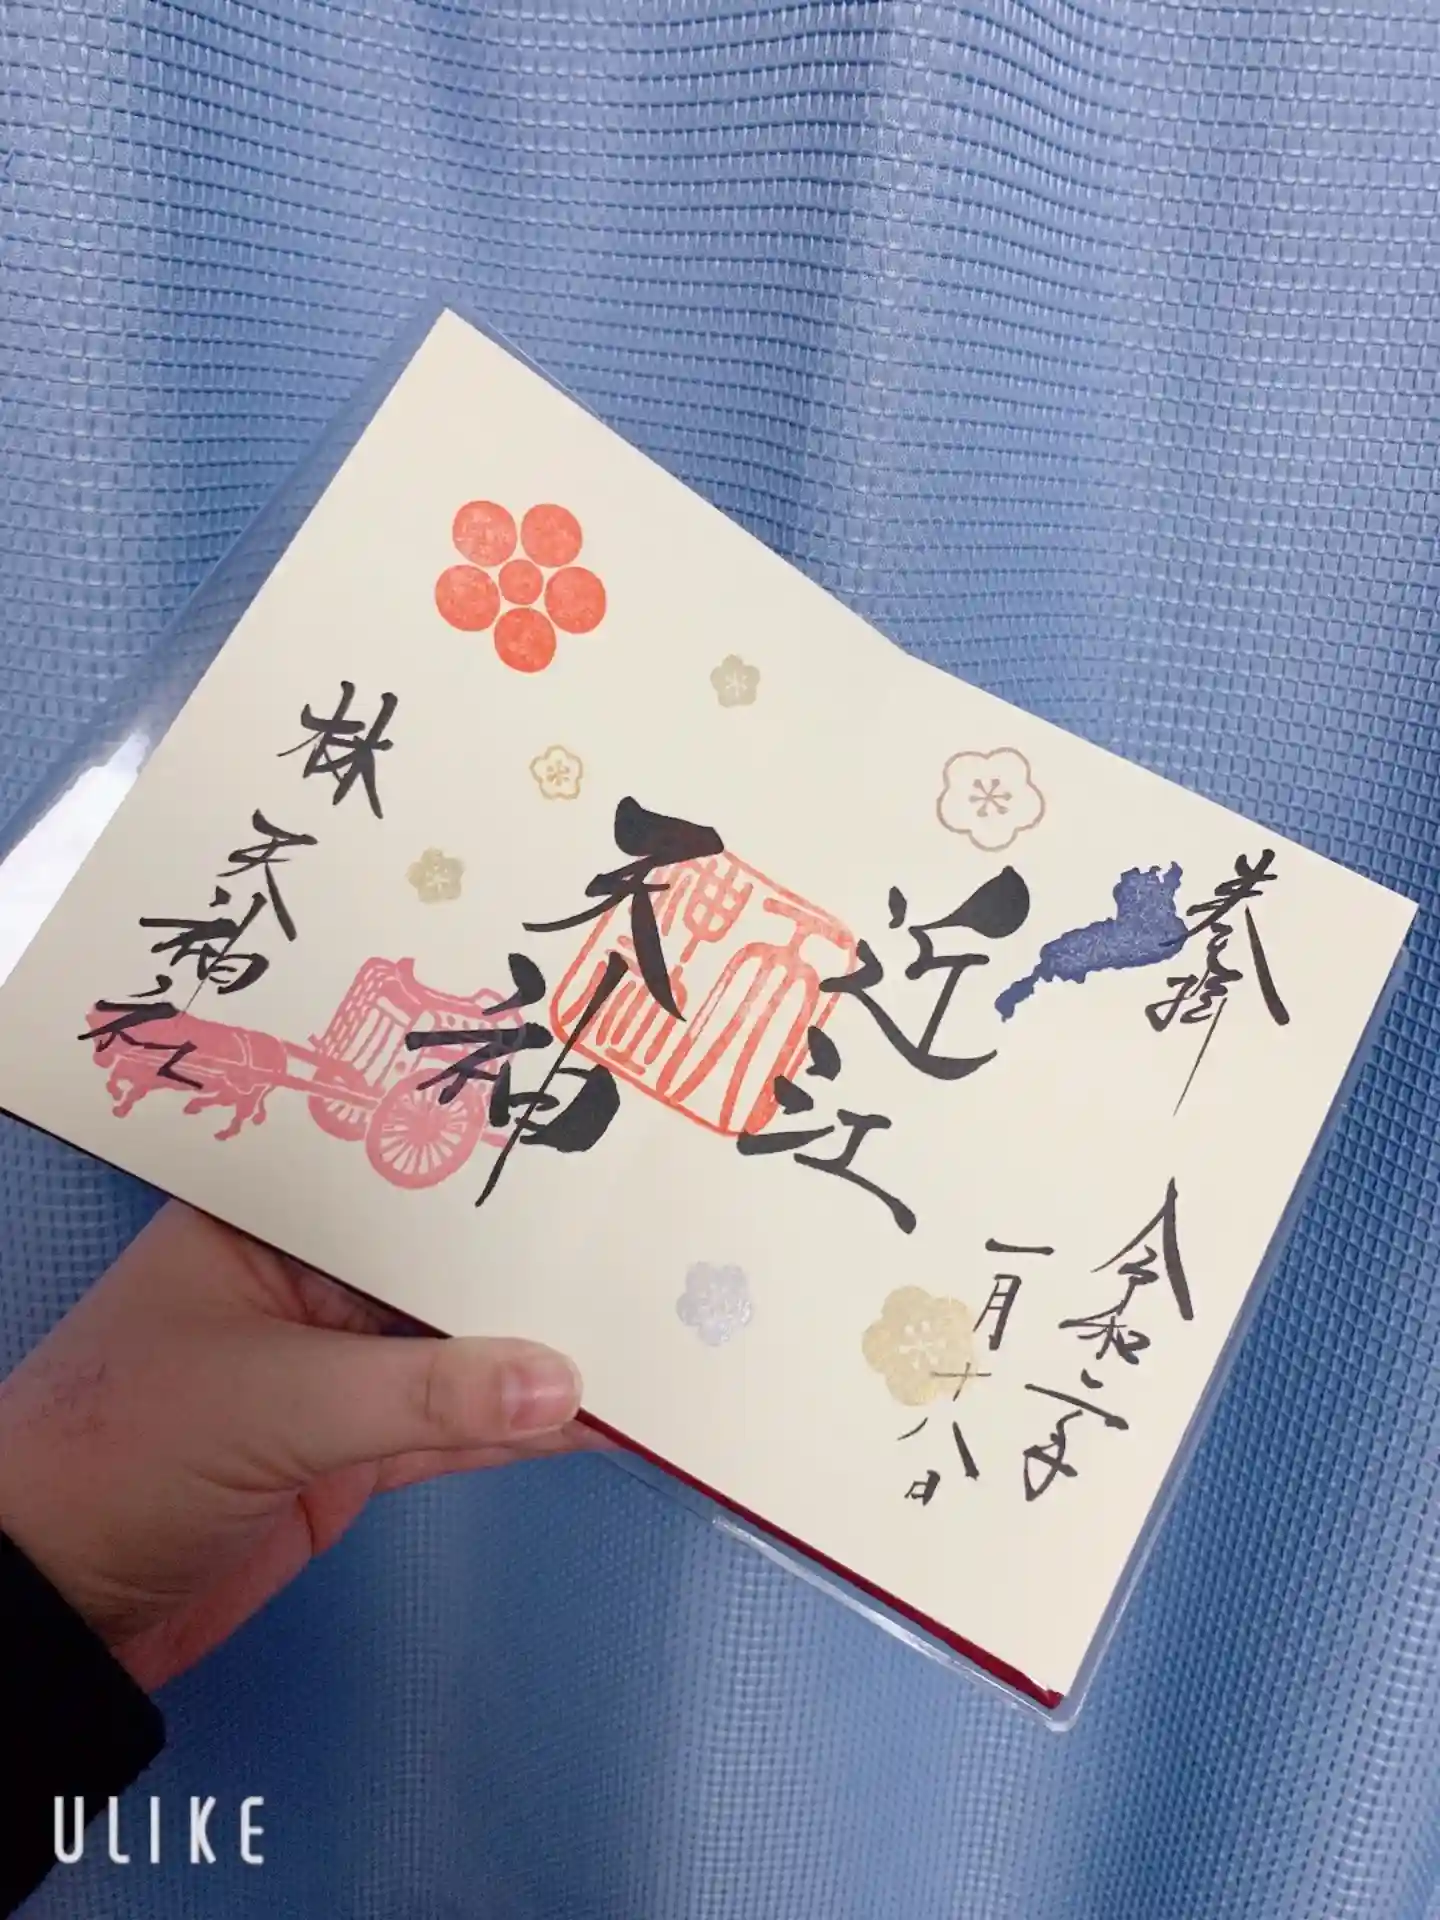 奉拝
令和二年
一月十八日
近江
天神
天
神社
林天神社
ULIKE